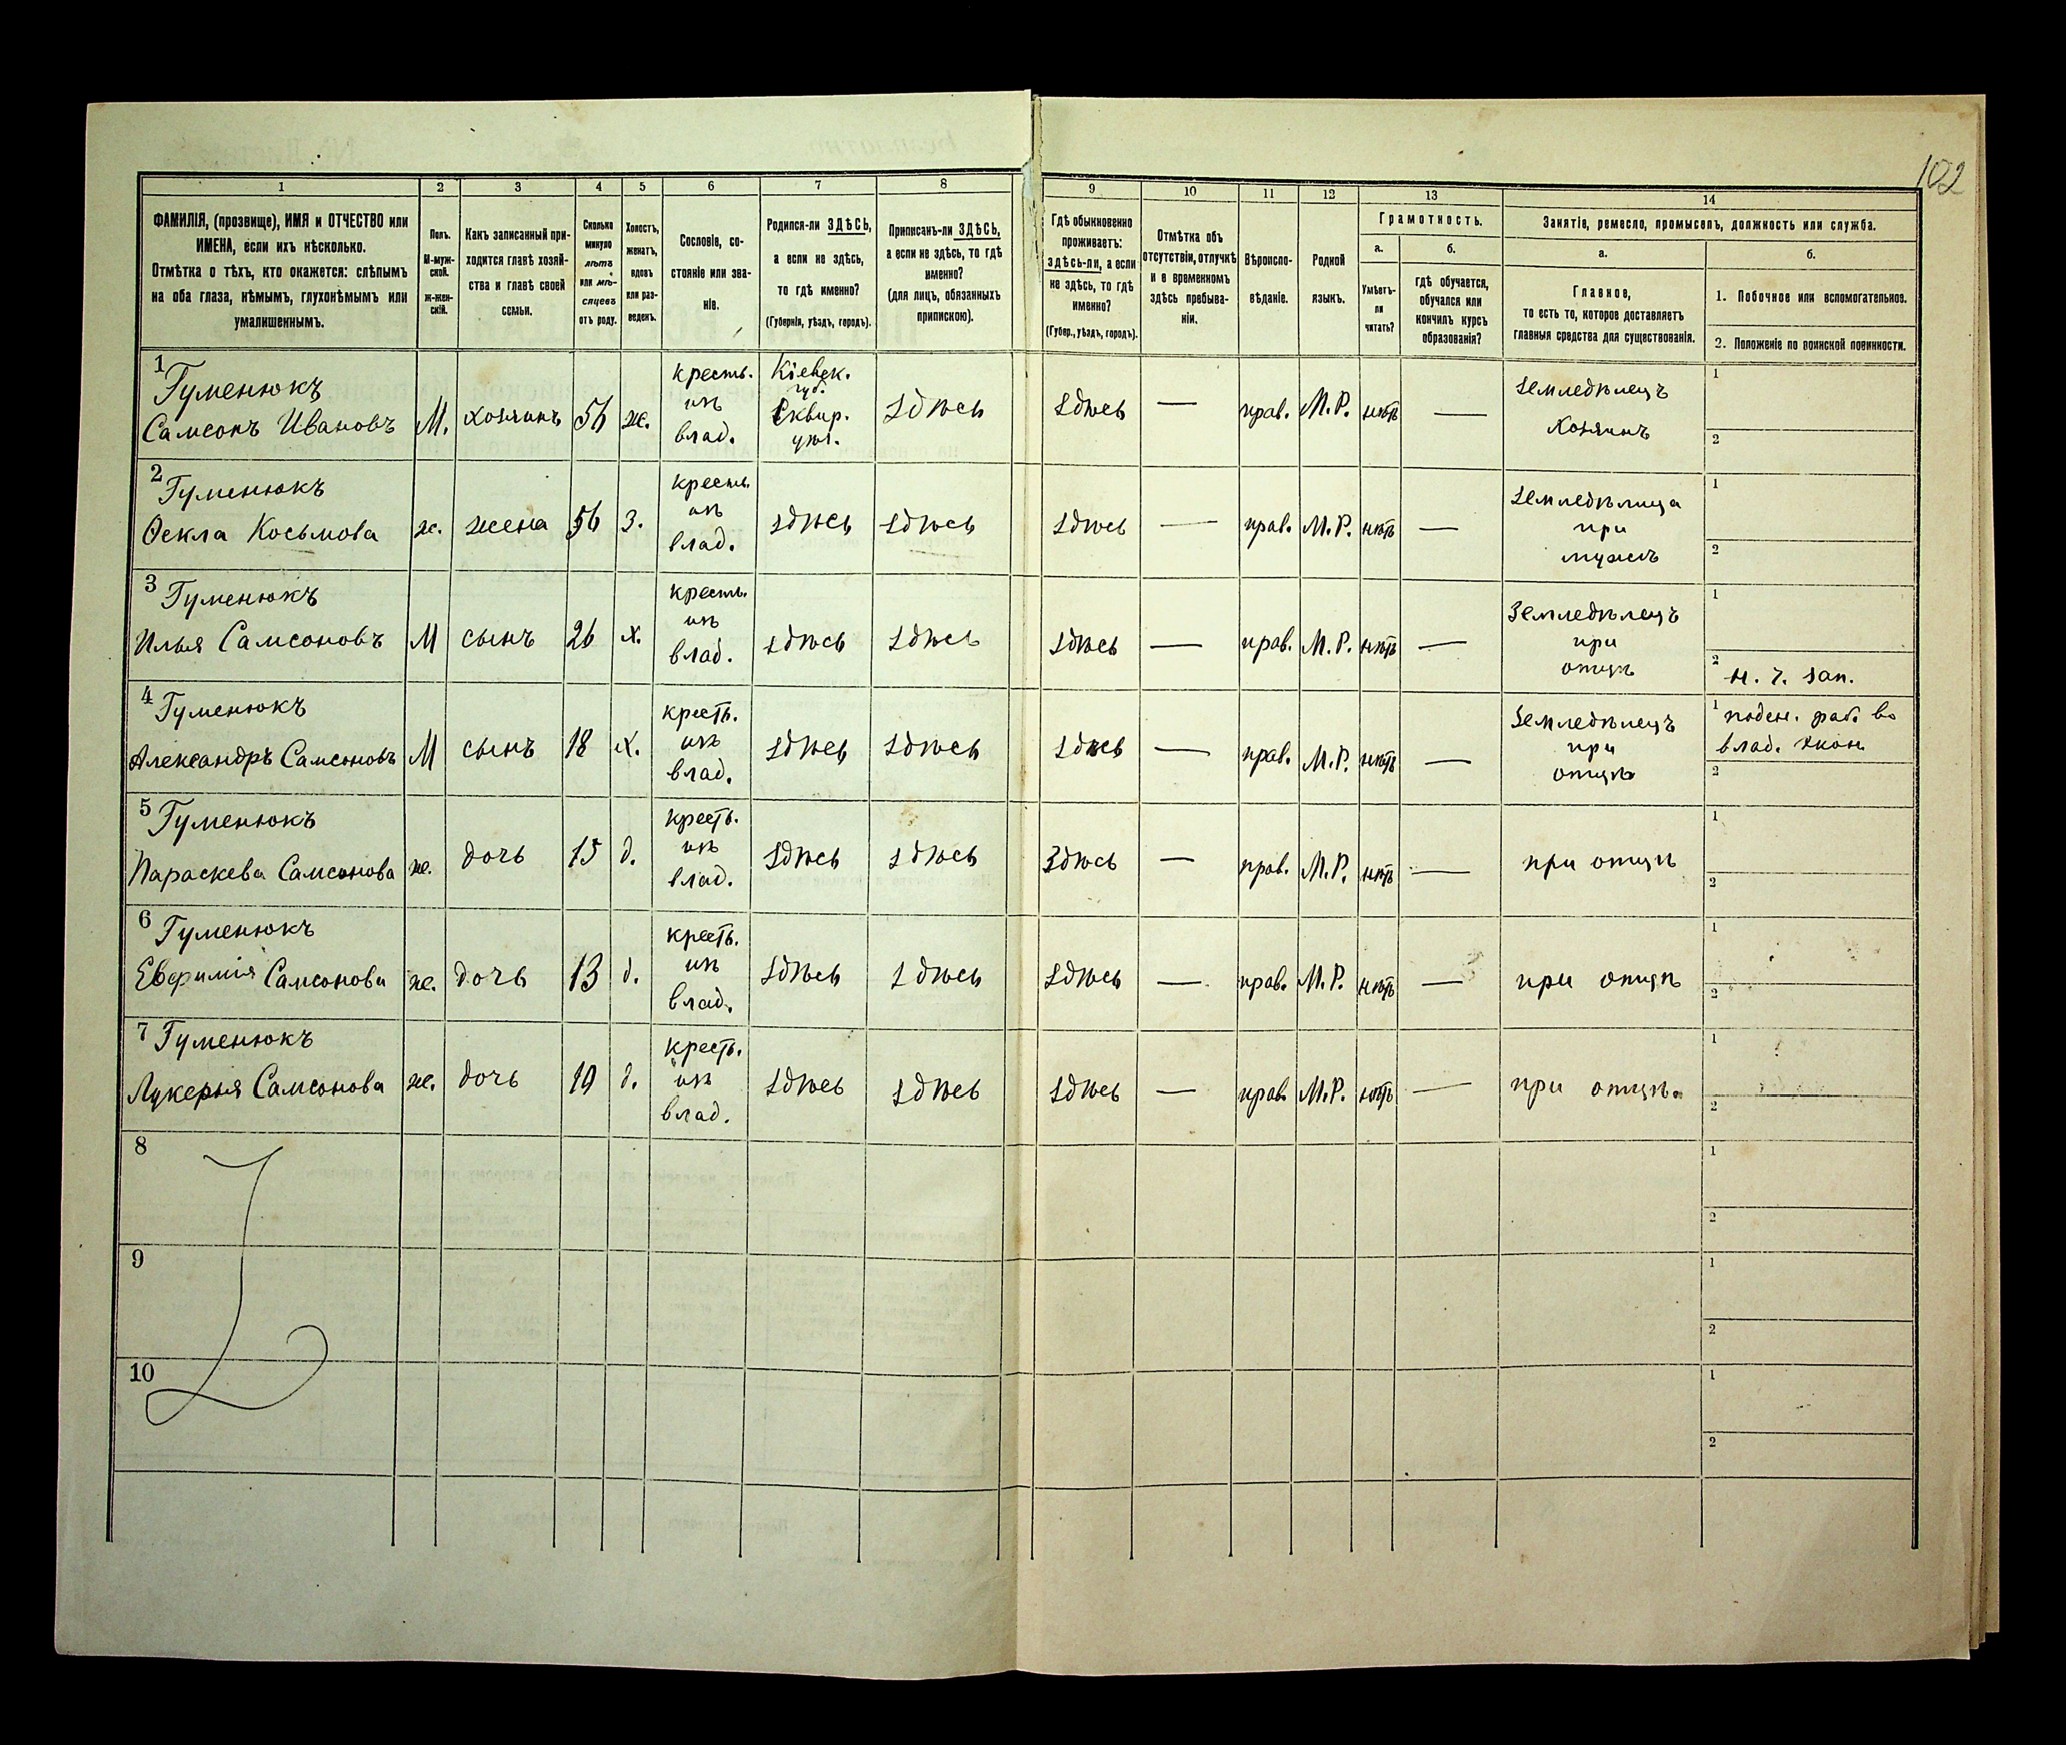 102
1 2 3 4 5 6 7 8 9 10 11 12 13 14
ФАМИЛІЯ, (прозвище), ИМЯ и ОТЧЕСТВО или
ИМЕНА, если ихъ нѣсколько.
Отмѣтка о тѣхъ, кто окажется: слѣпымъ
на оба глаза, нѣмымъ, глухонѣмымъ или
умалишеннымъ.
Полъ.
М-муж-
ской.
ж-жен-
скій.
Какъ записанный при-
ходится главѣ хозяй-
ства и главѣ своей
семьи.
Сколько
минуло
лѣтъ
или мѣ-
сяцевъ
отъ роду.
Холостъ,
женатъ,
вдовъ
или раз-
веденъ.
Сословіе, со-
стояніе или зва-
ніе.
Родился-ли ЗДѢСЬ,
а если не здѣсь,
то гдѣ именно?
(Губернія, уѣздъ, городъ).
Приписанъ-ли ЗДѢСЬ,
а если не здѣсь, то гдѣ
именно?
(для лицъ, обязанныхъ
припискою).
Гдѣ обыкновенно
проживаетъ:
здѣсь-ли, а если
не здѣсь, то гдѣ
именно?
(Губер., уѣздъ, городъ).
Отмѣтка объ
отсутствіи, отлучкѣ
и о временномъ
здѣсь пребыва-
ніи.
Вѣроиспо-
вѣданіе.
Родной
языкъ.
Грамотность.
а.
Умѣетъ-
ли
читать?
б.
гдѣ обучается,
обучался или
кончилъ курсъ
образованія?
Занятіе, ремесло, промыселъ, должность или служба.
а.
Главное,
то есть то, которое доставляетъ
главныя средства для существованія.
б.
1. Побочное или вспомогательное.
2. Положеніе по воинской повинности.
1
Гуменюкъ
Самсонъ Ивановъ
М.
хозяинъ
56
ж.
кресть.
изъ
влад.
Кіевск.
губ.
Сквир.
уѣз.
здѣсь
здѣсь
—
прав.
М.Р.
нѣтъ
—
земледѣлецъ
хозяинъ
1
2
2
Гуменюкъ
Ѳекла Косьмова
ж.
жена
56
з.
кресть.
изъ
влад.
здѣсь
здѣсь
здѣсь
—
прав.
М.Р.
нѣтъ
—
земледѣлица
при
мужѣ
1
2
3
Гуменюкъ
Илья Самсоновъ
М
сынъ
26
х.
кресть.
изъ
влад.
здѣсь
здѣсь
здѣсь
—
прав.
М.Р.
нѣтъ
—
Земледѣлецъ
при
отцѣ
1
2
н. ч. зап.
4
Гуменюкъ
Александръ Самсоновъ
М
сынъ
18
х.
кресть.
изъ
влад.
здѣсь
здѣсь
здѣсь
—
прав.
М.Р.
нѣтъ
—
Земледѣлецъ
при
отцѣ
1
поден. раб. во
влад. экон.
2
5
Гуменюкъ
Параскева Самсонова
ж.
дочь
15
д.
кресть.
изъ
влад.
здѣсь
здѣсь
Здѣсь
—
прав.
М.Р.
нѣтъ
—
при отцѣ
1
2
6
Гуменюкъ
Евфимія Самсонова
ж.
дочь
13
д.
кресть.
изъ
влад.
здѣсь
здѣсь
здѣсь
—
прав.
М.Р.
нѣтъ
—
при отцѣ
1
2
7
Гуменюкъ
Лукерья Самсонова
ж.
дочь
19
д.
кресть.
изъ
влад.
здѣсь
здѣсь
здѣсь
—
прав.
М.Р.
нѣтъ
—
при отцѣ.
1
2
8
1
2
9
1
2
10
1
2